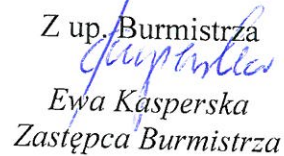 Z up. Burmistrza
Ewa Kasperska
Zastępca Burmistrza